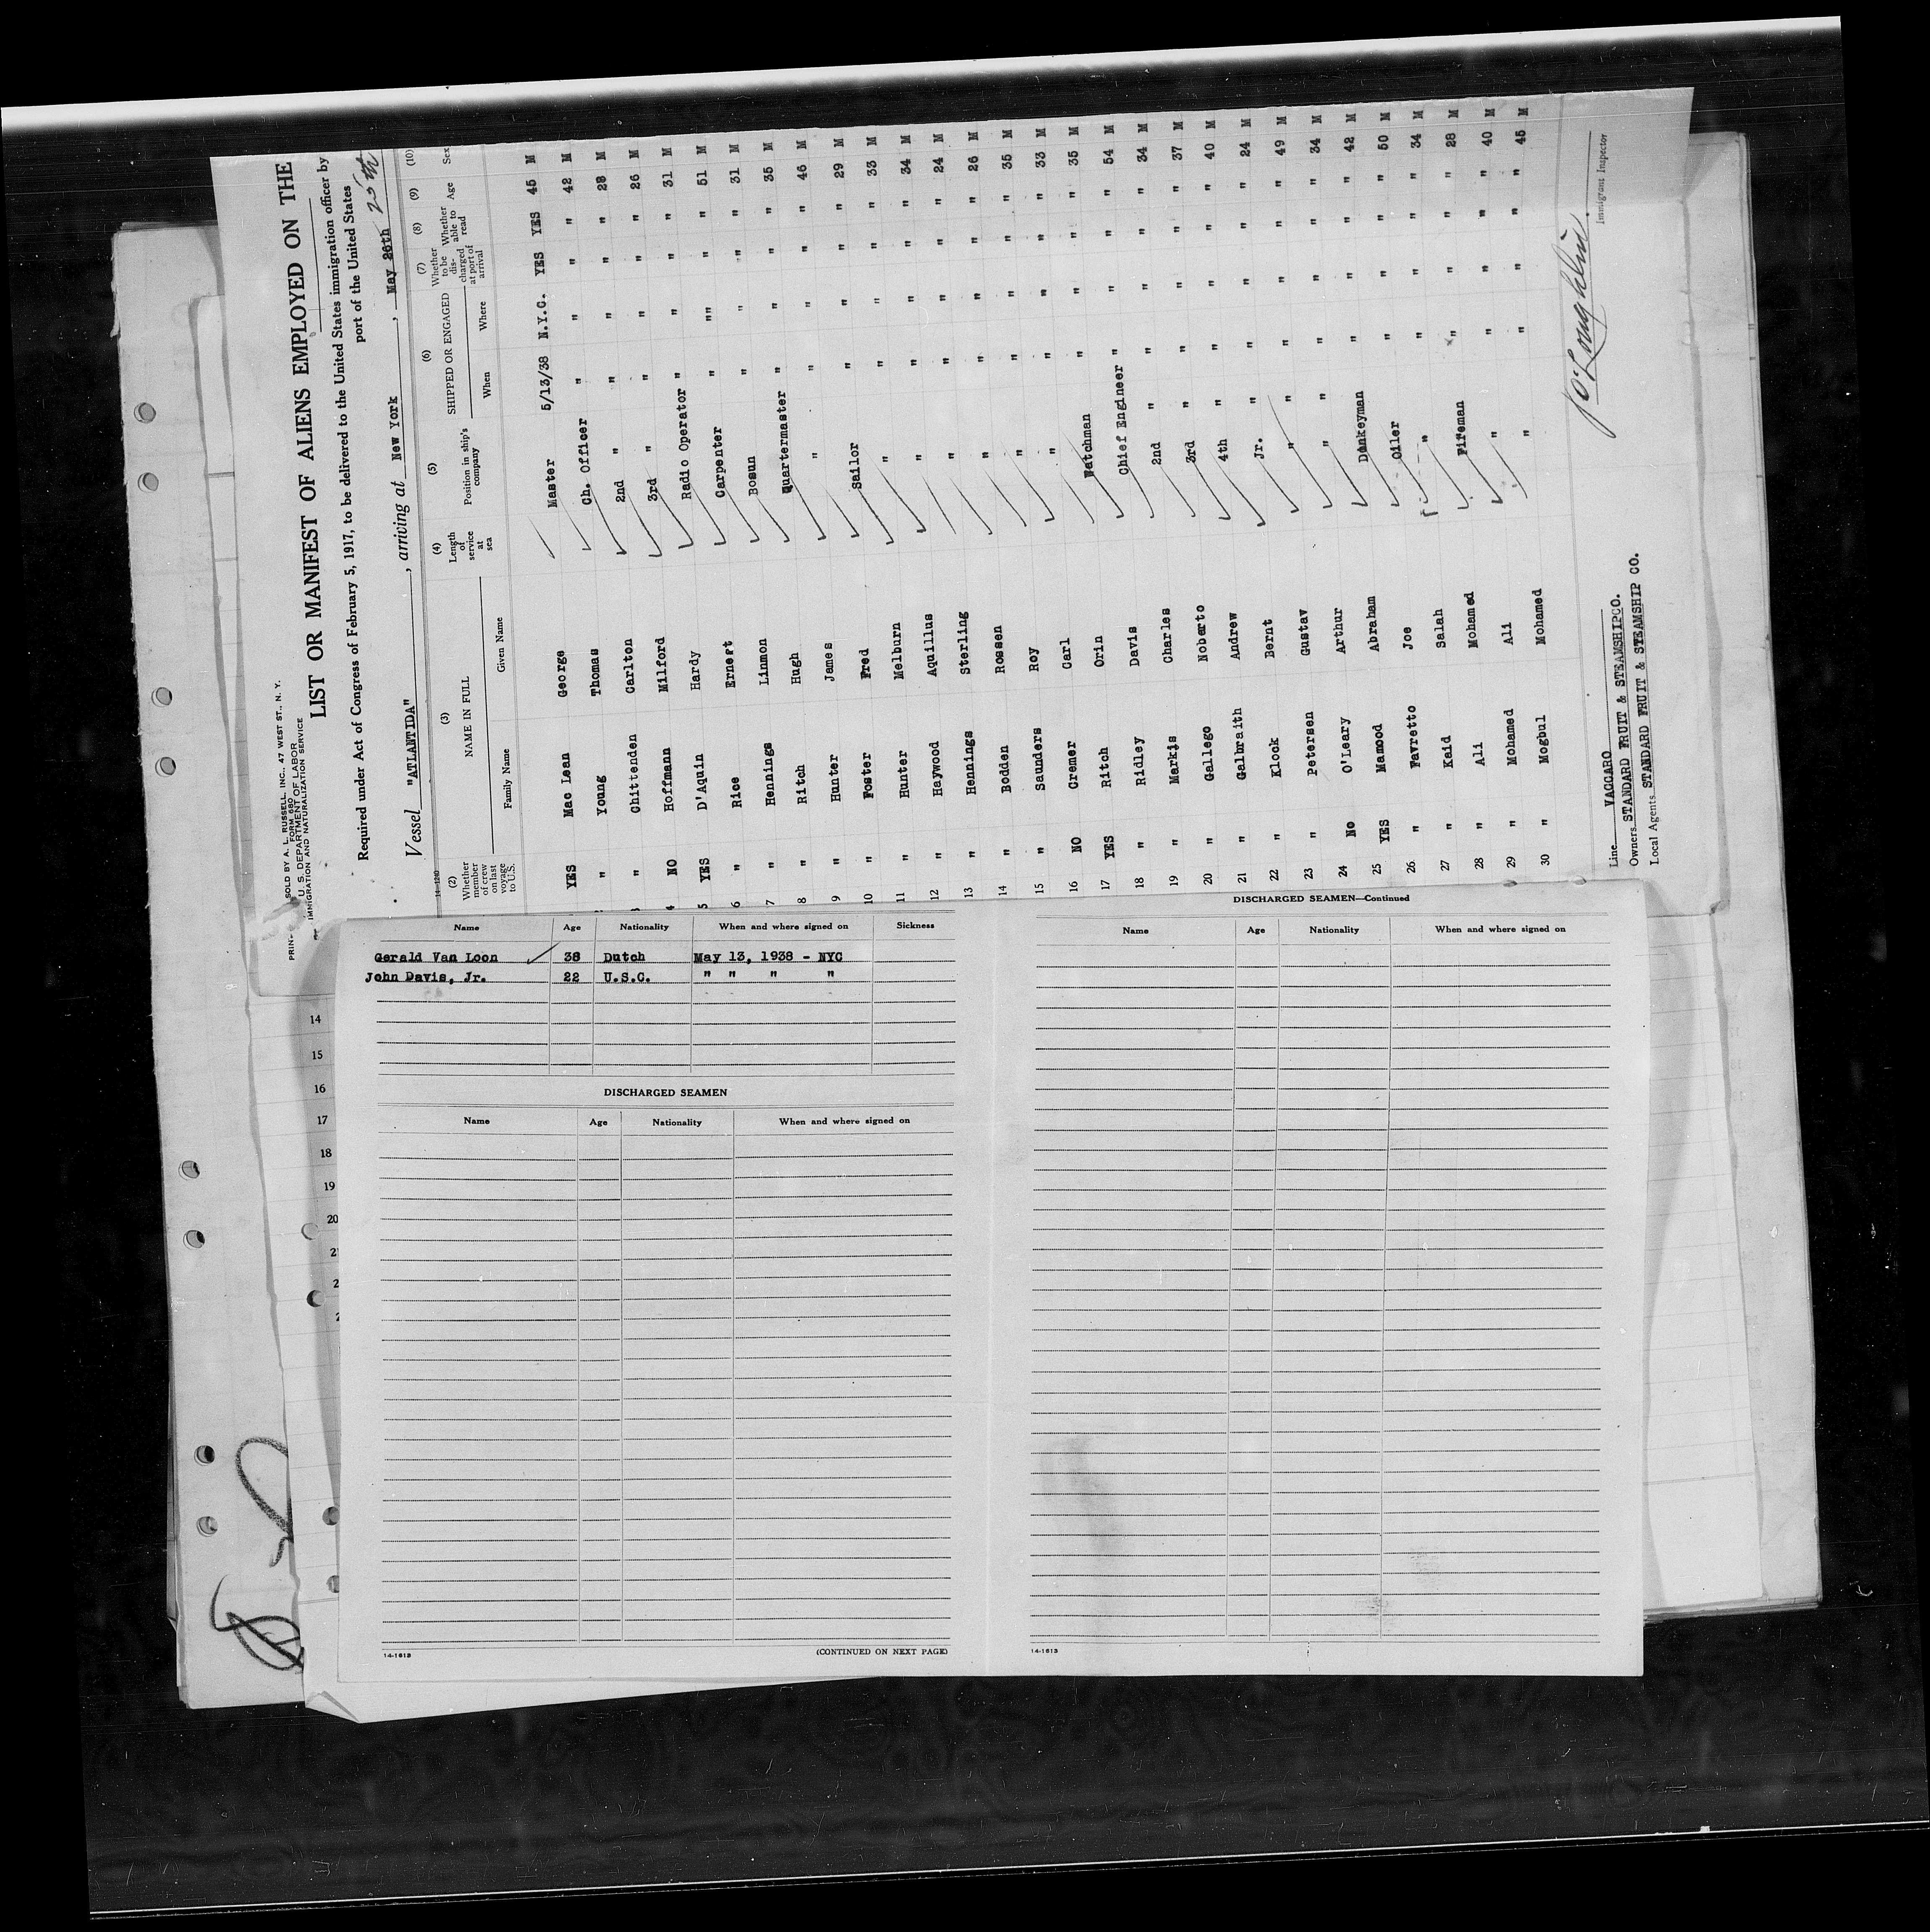 PRIN SOLD BY A. L. RUSSELL, INC., 47 WEST ST., N. Y.
FORM 680
U. S. DEPARTMENT OF LABOR
IMMIGRATION AND NATURALIZATION SERVICE
LIST OR MANIFEST OF ALIENS EMPLOYED ON THE
Required under Act of Congress of February 5, 1917, to be delivered to the United States immigration officer by
port of the United States
Vessel "ATLANTIDA", arriving at New York, May 26th 25th
14-1240
(2) Whether member of crew on last voyage to U.S. (3) NAME IN FULL Family Name Given Name (4) Length of service at sea (5) Position in ship's company (6) SHIPPED OR ENGAGED When Where (7) Whether to be discharged at port of arrival (8) Whether able to read (9) Age (10) Sex
YES Mac Lean George Master 5/13/38 N.Y.C. YES YES 45 M
" Young Thomas Ch. Officer " " " " 42 M
" Chittenden Carlton 2nd " " " " " 28 M
4 NO Hoffmann Milford 3rd " " " " " 26 M
5 YES D'Aquin Hardy Radio Operator " " " " 31 M
6 " Rice Ernest Carpenter " "" " " 51 M
7 " Hennings Linmon Bosun " " " " 31 M
8 " Ritch Hugh Quartermaster " " " " 35 M
9 " Hunter James " " " " " 46 M
10 " Foster Fred Sailor " " " " 29 M
11 " Hunter Melburn " " " " " 33 M
12 " Haywood Aquillus " " " " " 34 M
13 " Hennings Sterling " " " " " 24 M
14 " Bodden Rossen " " " " " 26 M
15 " Saunders Roy " " " " " 35 M
16 NO Cremer Carl " " " " " 33 M
17 YES Ritch Orin Watchman " " " " 35 M
18 " Ridley Davis Chief Engineer " " " " 54 M
19 " Markis Charles 2nd " " " " " 34 M
20 " Gallego Noberto 3rd " " " " " 37 M
21 " Galbraith Andrew 4th " " " " " 40 M
22 " Klock Bernt Jr. " " " " " 24 M
23 " Petersen Gustav " " " " " " 49 M
24 No O'Leary Arthur " " " " " " 34 M
25 YES Mamood Abraham Donkeyman " " " " 42 M
26 " Favretto Joe Oiler " " " " 50 M
27 " Kaid Salah " " " " " 34 M
28 " Ali Mohamed Fireman " " " " 28 M
29 " Mohamed Ali " " " " " 40 M
30 " Mogbul Mohamed " " " " " 45 M
Line VACCARO
Owners STANDARD FRUIT & STEAMSHIP CO.
Local Agents STANDARD FRUIT & STEAMSHIP CO.
O'Loughlin
Immigrant Inspector
Name Age Nationality When and where signed on Sickness
Gerald Van Loon 38 Dutch May 13, 1938 - NYC
John Davis, Jr. 22 U.S.C. " " " "
DISCHARGED SEAMEN
Name Age Nationality When and where signed on
14-1613 (CONTINUED ON NEXT PAGE)
DISCHARGED SEAMEN—Continued
Name Age Nationality When and where signed on
14-1613
14
15
16
17
18
19
20